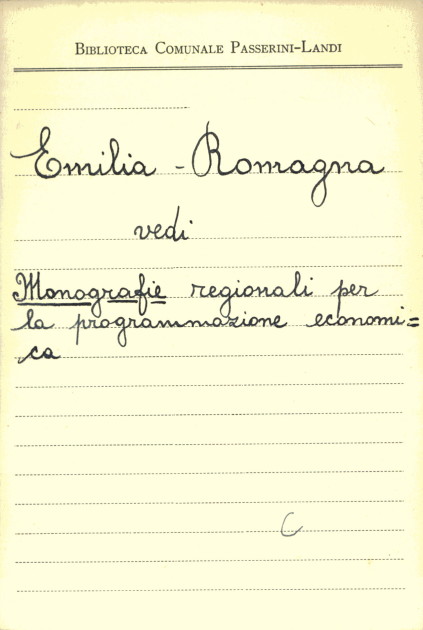 Biblioteca Comunale Passerini-Landi
Emilia - Romagna
vedi
Monografie regionali per
la programmazione economi=
ca
C